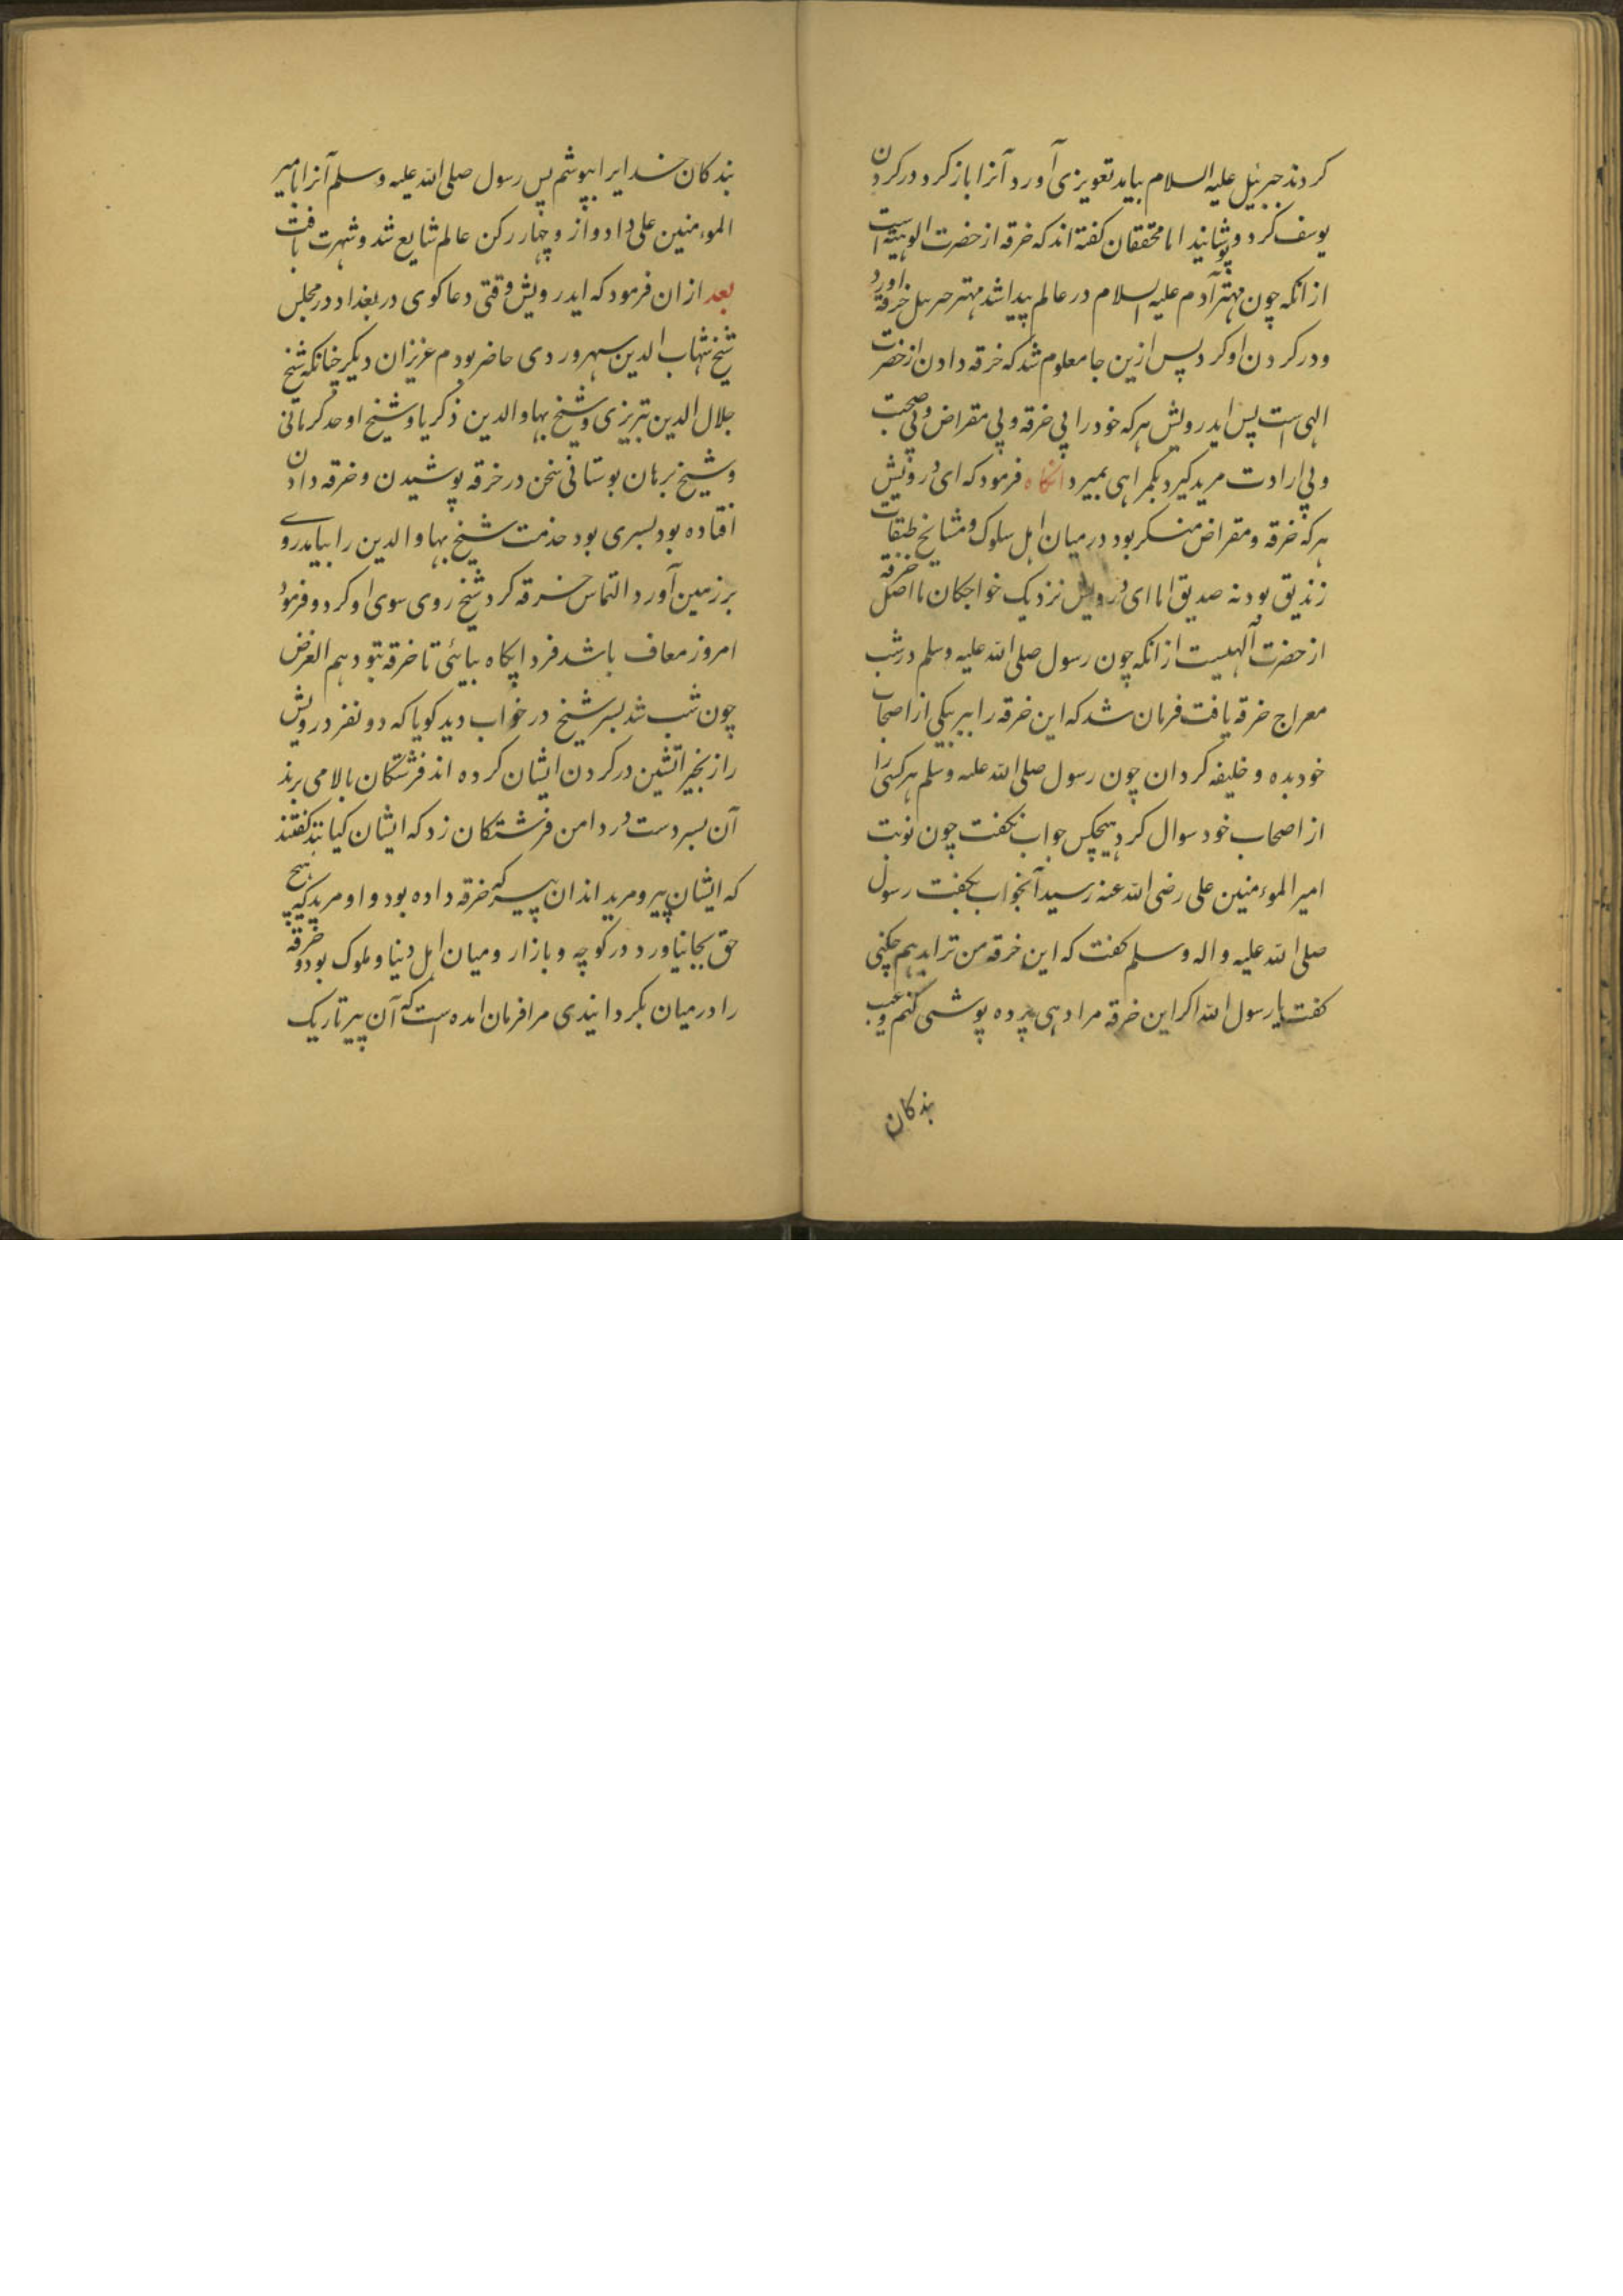 کردند جبرئیل علیه السلام بیاید تعویزی آورد آنرا باز کرد در کردن
یوسف کرد و پوشانید اما محققان کفته اند که خرقه از حضرت الوهیت است
از انکه چون مهتر آدم علیه السلام در عالم پیدا شد مهتر جبرئیل خرقه اورد
و در کردن او کرد پس ازین جا معلوم شد که خرقه دادن از حضرت
الهی است پس ایدرویش هر که خود را بی خرقه و بی مقراض و بی صحبت
و بی ارادت مرید کیرد بکمراهی بمیرد انکاه فرمود که ای درویش
هر که خرقه و مقراض منکر بود در میان اهل سلوک و مشایخ طبقات
زندیق بود نه صدیق اما ای درویش نزدیک خواجکان ما اصل خرقه
از حضرت آلهیست از انکه چون رسول صلی الله علیه وسلم در شب
معراج خرقه یافت فرمان شد که این خرقه را ببر بیکی از اصحاب
خود بده و خلیفه کردان چون رسول صلی الله علیه وسلم هر کسی را
از اصحاب خود سوال کرد هیچکس جواب نکفت چون نوبت
امیر المومنین علی رضی الله عنه رسید آنجواب بکفت رسول
صلی الله علیه و اله وسلم کفت که این خرقه من ترا بدهم چکنی
کفت یا رسول الله اکر این خرقه مرا دهی پرده پوشی کنم و عیب
بندکان
بندکان خدایرا بپوشم پس رسول صلی الله علیه وسلم آنرا بامیر
المومنین علی داد و از و چهار رکن عالم شایع شد و شهرت یافت
بعد ازان فرمود که ایدرویش وقتی دعاکوی در بغداد در مجلس
شیخ شهاب الدین سهروردی حاضر بودم عزیزان دیکر چنانکه شیخ
جلال الدین تبریزی و شیخ بهاو الدین ذکریا و شیخ اوحد کرمانی
و شیخ برهان بوستانی سخن در خرقه پوشیدن و خرقه دادن
افتاده بود بسری بود خدمت شیخ بهاو الدین را بیامد روے
بر زمین آورد التماس خرقه کرد شیخ روی سوی او کرد و فرمود
امروز معاف باشد فردا بکاه بیائی تا خرقه بتو دهم الغرض
چون شب شد بسر شیخ در خواب دید کویا که دو نفر درویش
را زنجیر اتشین در کردن ایشان کرده اند فرشتکان بالا می برند
آن بسر دست در دامن فرشتکان زد که ایشان کیانند کفتند
که ایشان پیر و مرید اند ان پیر که خرقه داده بود و او مرید که هیچ
حق بجا نیاورد در کوچه و بازار و میان اهل دنیا و ملوک بود و خرقه
را در میان بکردانیدی مرا فرمان امده است که آن پیر تاریک